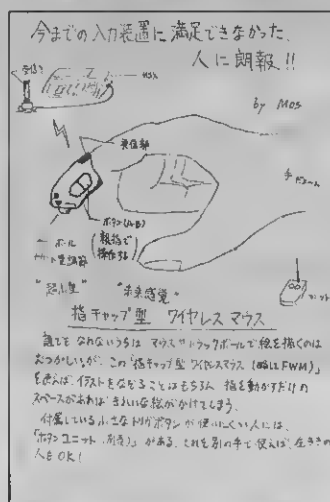 今までの入力装置に満足できなかった
人に朗報!!
受信部
MSX
by Mos
発信部
ボタン(A・B)
(親指で
操作する)
ボール
"超小型" "未来感覚"
指キャップ型 ワイヤレスマウス
誰でもなれないうちは マウスやトラックボールで絵を描くのは
むづかしいが、この「指キャップ型ワイヤレスマウス(略してFWM)」
を使えば、イラストをなぞることはもちろん 指を動かすだけの
スペースがあれば きれいな絵がかけてしまう。
付属している小さなトリガボタンが使いにくい人には、
「ボタンユニット(別売)」がある。これを別の手で使えば、左ききの
人もOK!